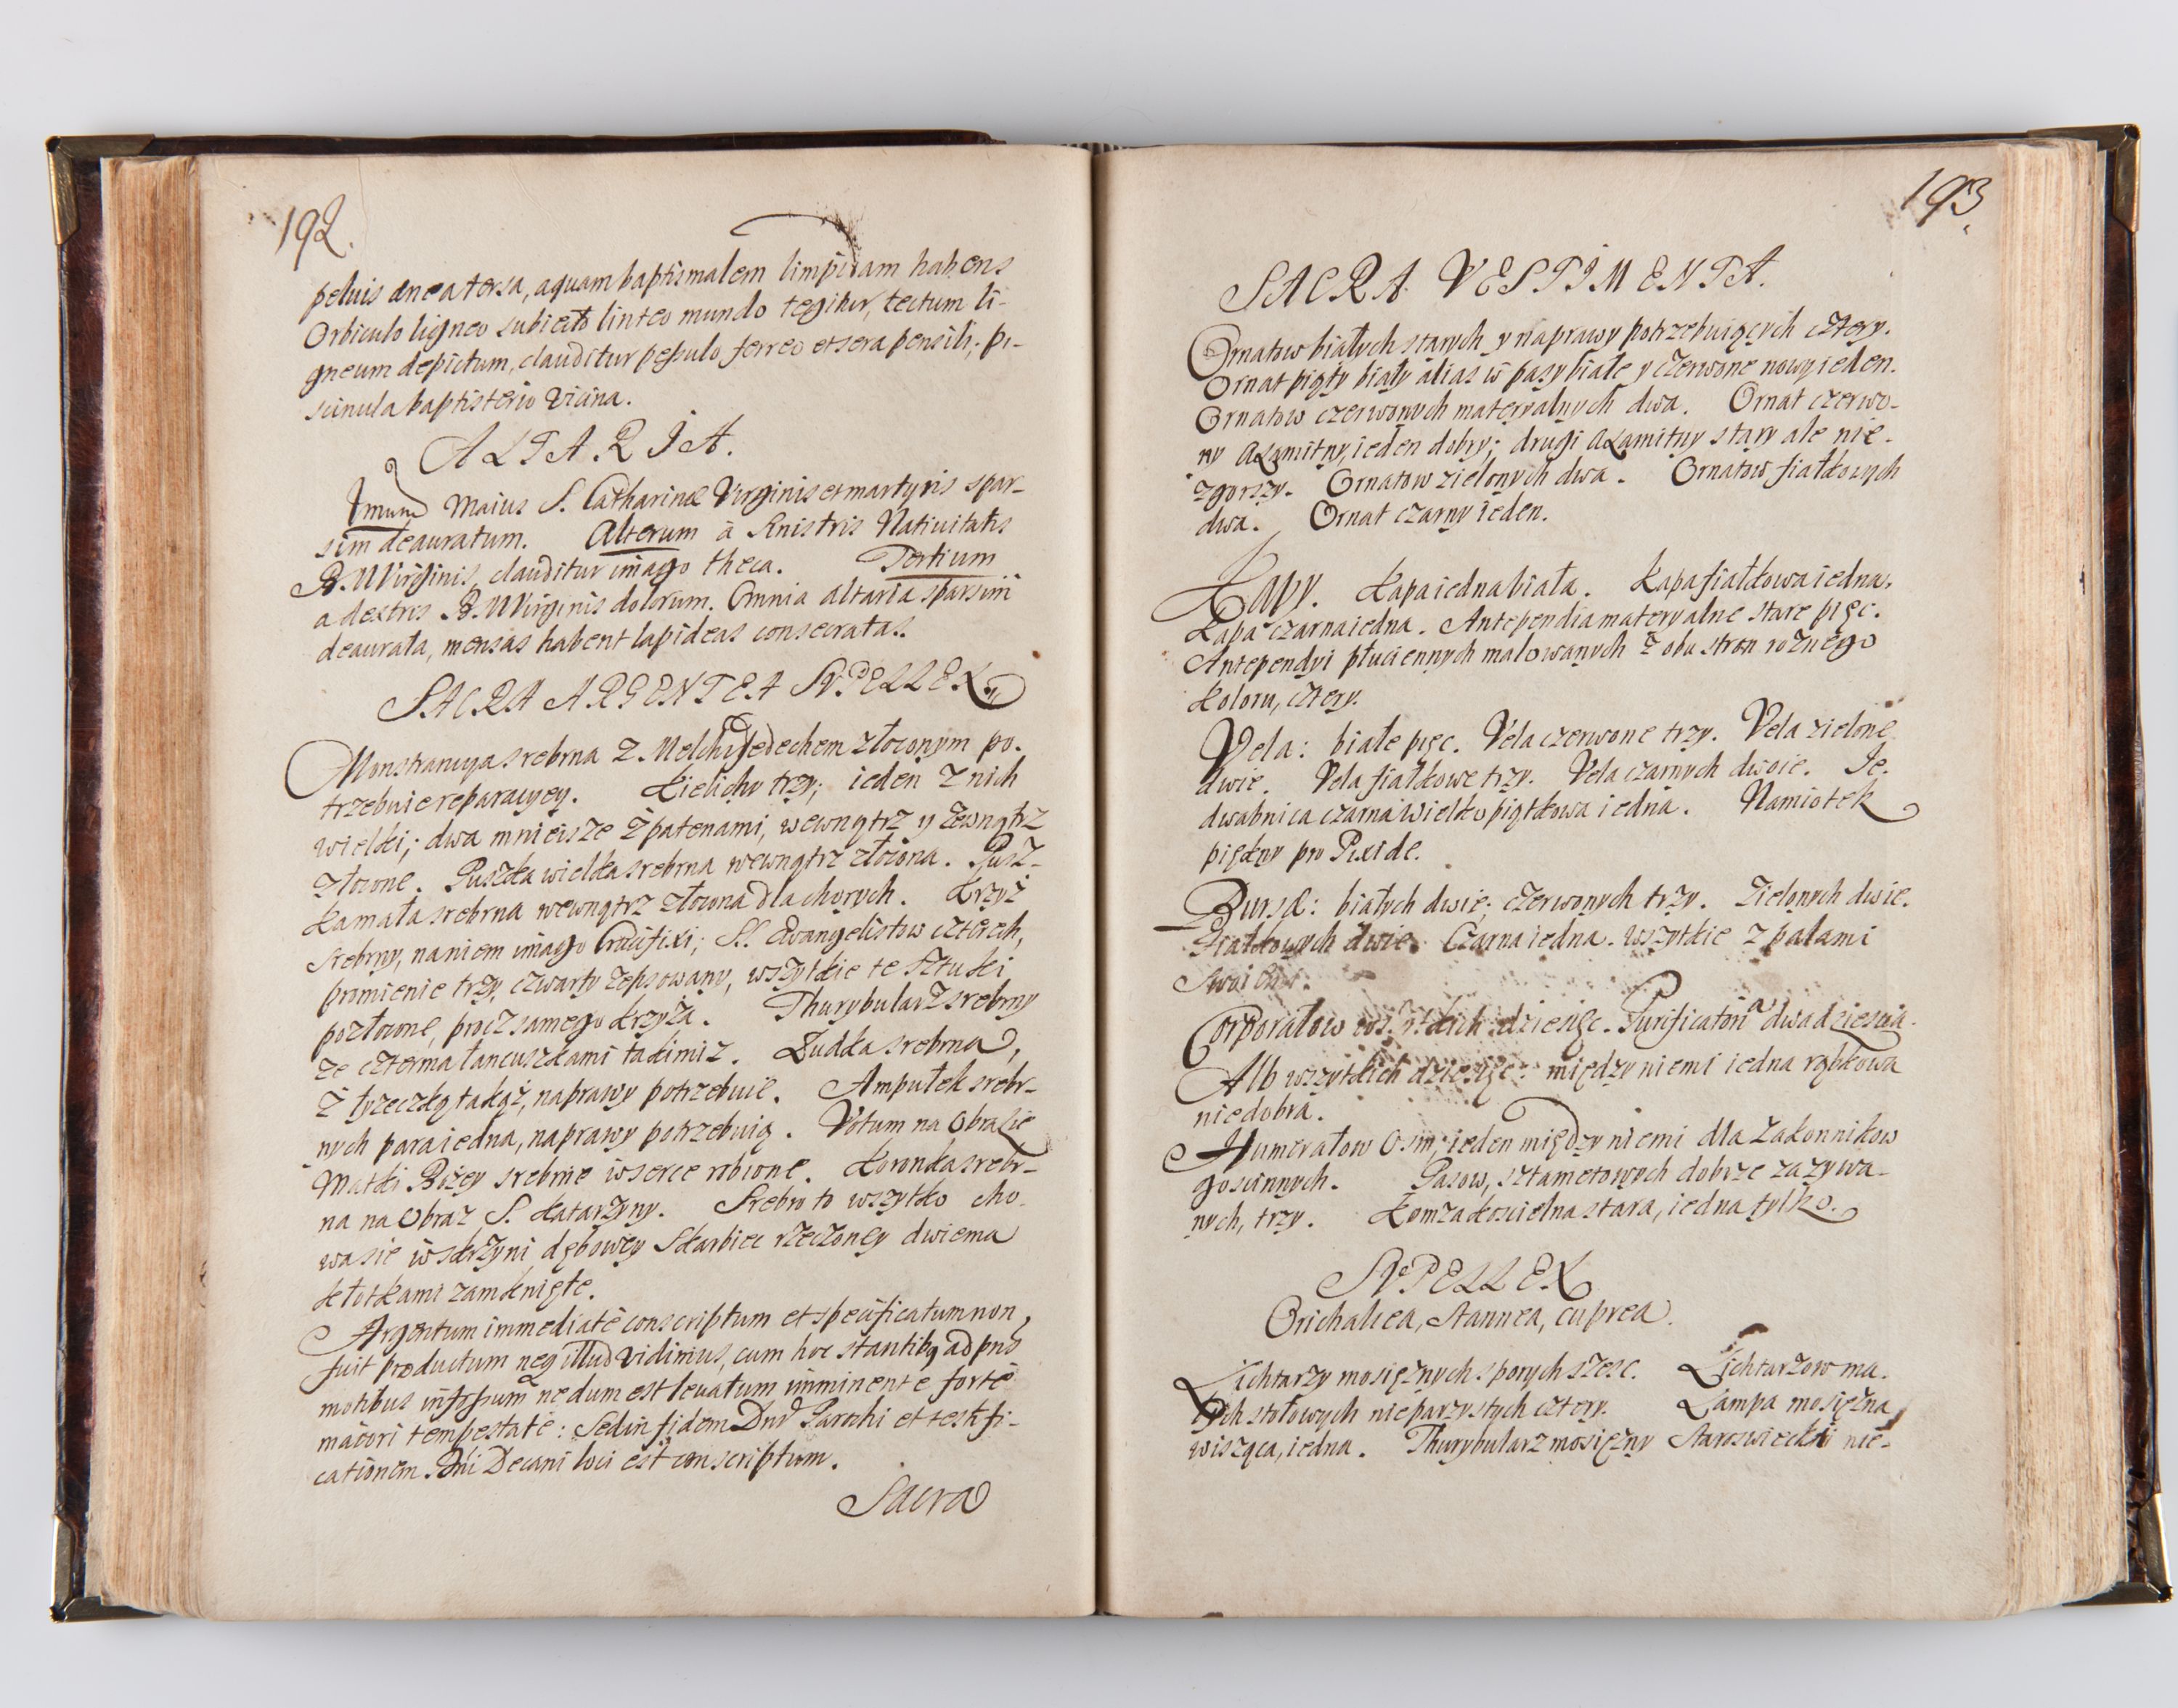 192.
peluis ænea tersa, aquam baptismalem limpidam habens
Orbiculo ligneo subiecto linteo mundo tegitur, tectum li-
gneum depictum, clauditur pessulo ferreo et sera pensili, pi-
scinula baptisterio vicina.
ALTARIA.
Imum Maius S. Catharinæ Virginis et martyris spar-
sim deauratum. Alterum à Sinistris Natiuitatis
B. M Virginis, clauditur imago theca. Tertium
a dextris B. M Virginis dolorum. Omnia altaria sparsim
deaurata, mensas habent lapideas consecratas.
SACRA ARGENTEA SUPELLEX
Monstrancya srebrna z Melchisedechem złoconym po-
trzebuie reparacyey. Kielichy trzy; ieden z nich
wielki; dwa mnieisze z patenami, wewnątrz y zewnątrz
złocone. Puszka wielka srebrna wewnątrz złocona. Pusz-
ka mała srebrna wewnątrz złocona dla chorych. Krzyż
srebrny, na niem imago Crucifixi; SS. Ewangelistow czterech,
promienie trzy, czwarty zepsowany, wszytkie te sztuki
pozłocone, procz samego krzyża. Thurybularz srebrny
ze czterma łancuszkami takimiz. Łudka srebrna,
z łyzeczką takąż, naprawy potrzebuie. Ampułek srebr-
nych para iedna, naprawy potrzebuią. Votum na Obrazie
Matki Bożey srebrne w serce robione. Koronka srebr-
na na Obraz S. Katarzyny. Srebro to wszytko cho-
wa sie w skrzyni dębowey Skarbiec rzeczoney dwiema
kłotkami zamknięte.
Argentum immediatè conscriptum et specificatum non
fuit productum neq illud vidimus, cum hoc stantibq ad pns
motibus infossum nedum est leuatum imminente fortè
maiori tempestate: Sed in fidem Dni Parochi et testifi-
cationem Dni Decani loci est conscriptum.
Sacra
193.
SACRA VESTIMENTA.
Ornatow białych starych y naprawy potrzebuiących cztery.
Ornat piąty biały alias w pasy białe y czerwone nowy ieden.
Ornatow czerwonych materyalnych dwa. Ornat czerwo-
ny axamitny, ieden dobry; drugi axamitny stary ale nie-
zgorszy. Ornatow zielonych dwa. Ornatow fiałkowych
dwa. Ornat czarny ieden.
Kapy. Kapa iedna biała. Kapa fiałkowa iedna,
Kapa czarna iedna. Antependia materyalne stare pięc.
Antependyi płuciennych malowanych z obu stron rożnego
koloru, cztery.
Vela: białe pięc. Vela czerwone trzy. Vela zielone
dwie. Vela fiałkowe trzy. Vela czarnych dwoie. Je-
dwabnica czarna Wielkopiątkowa iedna. Namiotek
piękny pro Pixide.
Bursæ: białych dwie, czerwonych trzy. Zielonych dwie.
Fiałkowych dwie. Czarna iedna. Wszytkie z pałami
swoimi.
Corporałow wszytkich dziesięc. Purificatoria dwadziescia.
Alb wszytkich dziesięc: między niemi iedna rąbkowa
niedobra.
Humerałow Osm, ieden między niemi dla zakonnikow
goscinnych. Pasow, sztametowych dobrze zazywa-
nych, trzy. Komza koscielna stara, iedna tylko.
SUPELLEX
Orichalcea, stannea, cuprea.
Lichtarzy mosiężnych sporych szesc. Lichtarzow ma-
łych stołowych nieparzystych cztery. Lampa mosiężna
wisząca, iedna. Thurybularz mosiężny Staroswiecki nie-